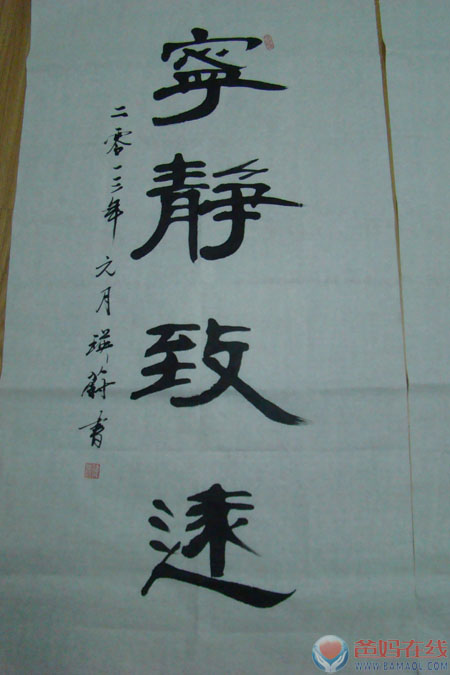 寧靜致遠
二零一三年元月瑛蔚书
爸妈在线
WWW.BAMAOL.COM